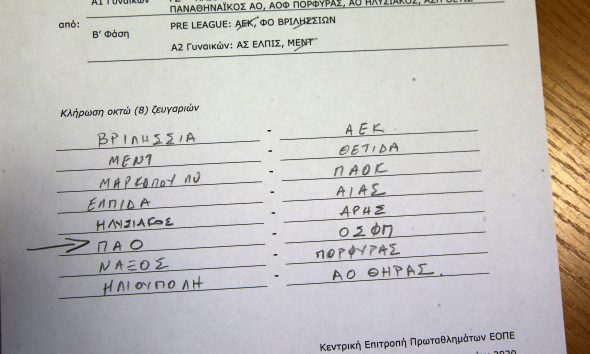 Α1 Γυναικών
ΠΑΝΑΘΗΝΑΪΚΟΣ ΑΟ, ΑΟΦ ΠΟΡΦΥΡΑΣ, ΑΟ ΗΛΥΣΙΑΚΟΣ,
από:
Β' Φάση
PRE LEAGUE: ΑΕΚ, ΦΟ ΒΡΙΛΗΣΣΙΩΝ
Α2 Γυναικών: ΑΣ ΕΛΠΙΣ, ΜΕΝΤ
Κλήρωση οκτώ (8) ζευγαριών
ΒΡΙΛΗΣΣΙΑ - ΑΕΚ
ΜΕΝΤ - ΘΕΤΙΔΑ
ΜΑΡΚΟΠΟΥΛΟ - ΠΑΟΚ
ΕΛΠΙΔΑ - ΑΙΑΣ
ΗΛΥΣΙΑΚΟΣ - ΑΡΗΣ
ΠΑΟ - ΟΣΦΠ
ΝΑΞΟΣ - ΠΟΡΦΥΡΑΣ
ΗΛΙΟΥΠΟΛΗ - ΑΟ ΘΗΡΑΣ.
Κεντρική Επιτροπή Πρωταθλημάτων ΕΟΠΕ
2020